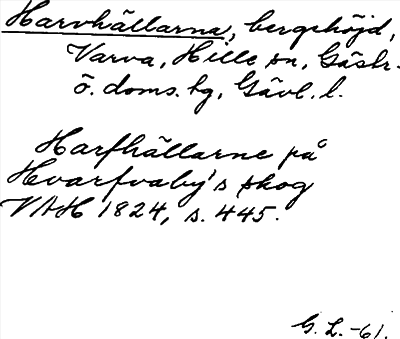 Harvhällarna, bergshöjd,
Varva, Hille sn, Gästr.
ö. doms. hg, Gävl. l.
Harfhällarne på
Hvarfvaby's skog
VAH 1824, s. 445.
G. L. -61.